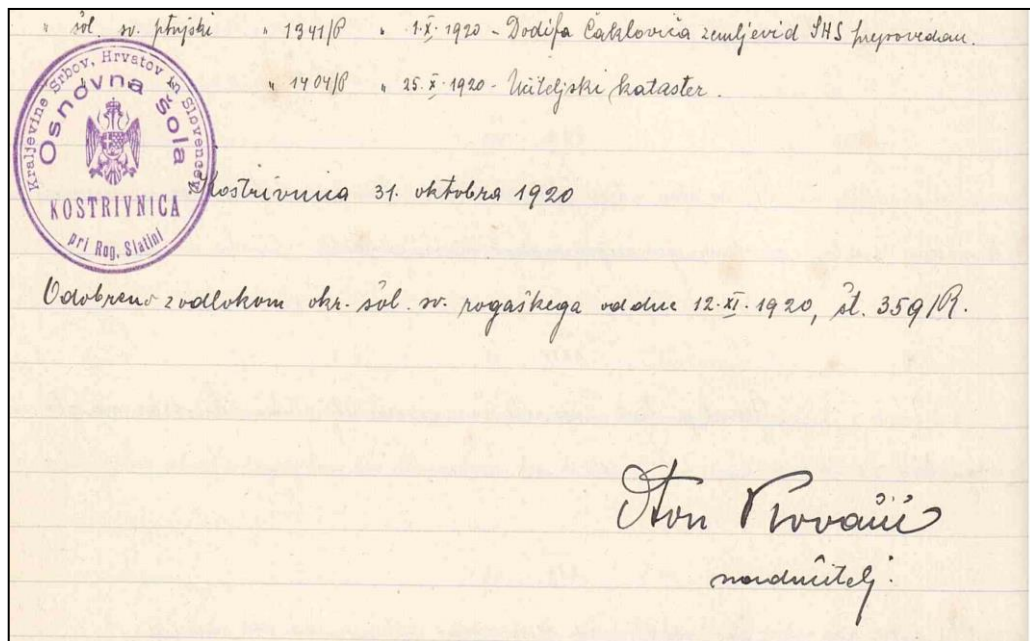 " šol. sv. ptujski " 1341/P " 1.X. 1920 - Dodifa Čaklovića zemljevid SHS prepovedan.
" 1404/P " 25.X.1920 - Učiteljski kataster.
Kraljevine Srbov, Hrvatov in Slovencev
Osnovna šola
KOSTRIVNICA
pri Rog. Slatini
Kostrivnica 31. oktobra 1920
Odobreno z odlokom okr. šol. sv. rogaškega od dne 12.XI.1920, št. 359/R.
Oton
nadučitelj.